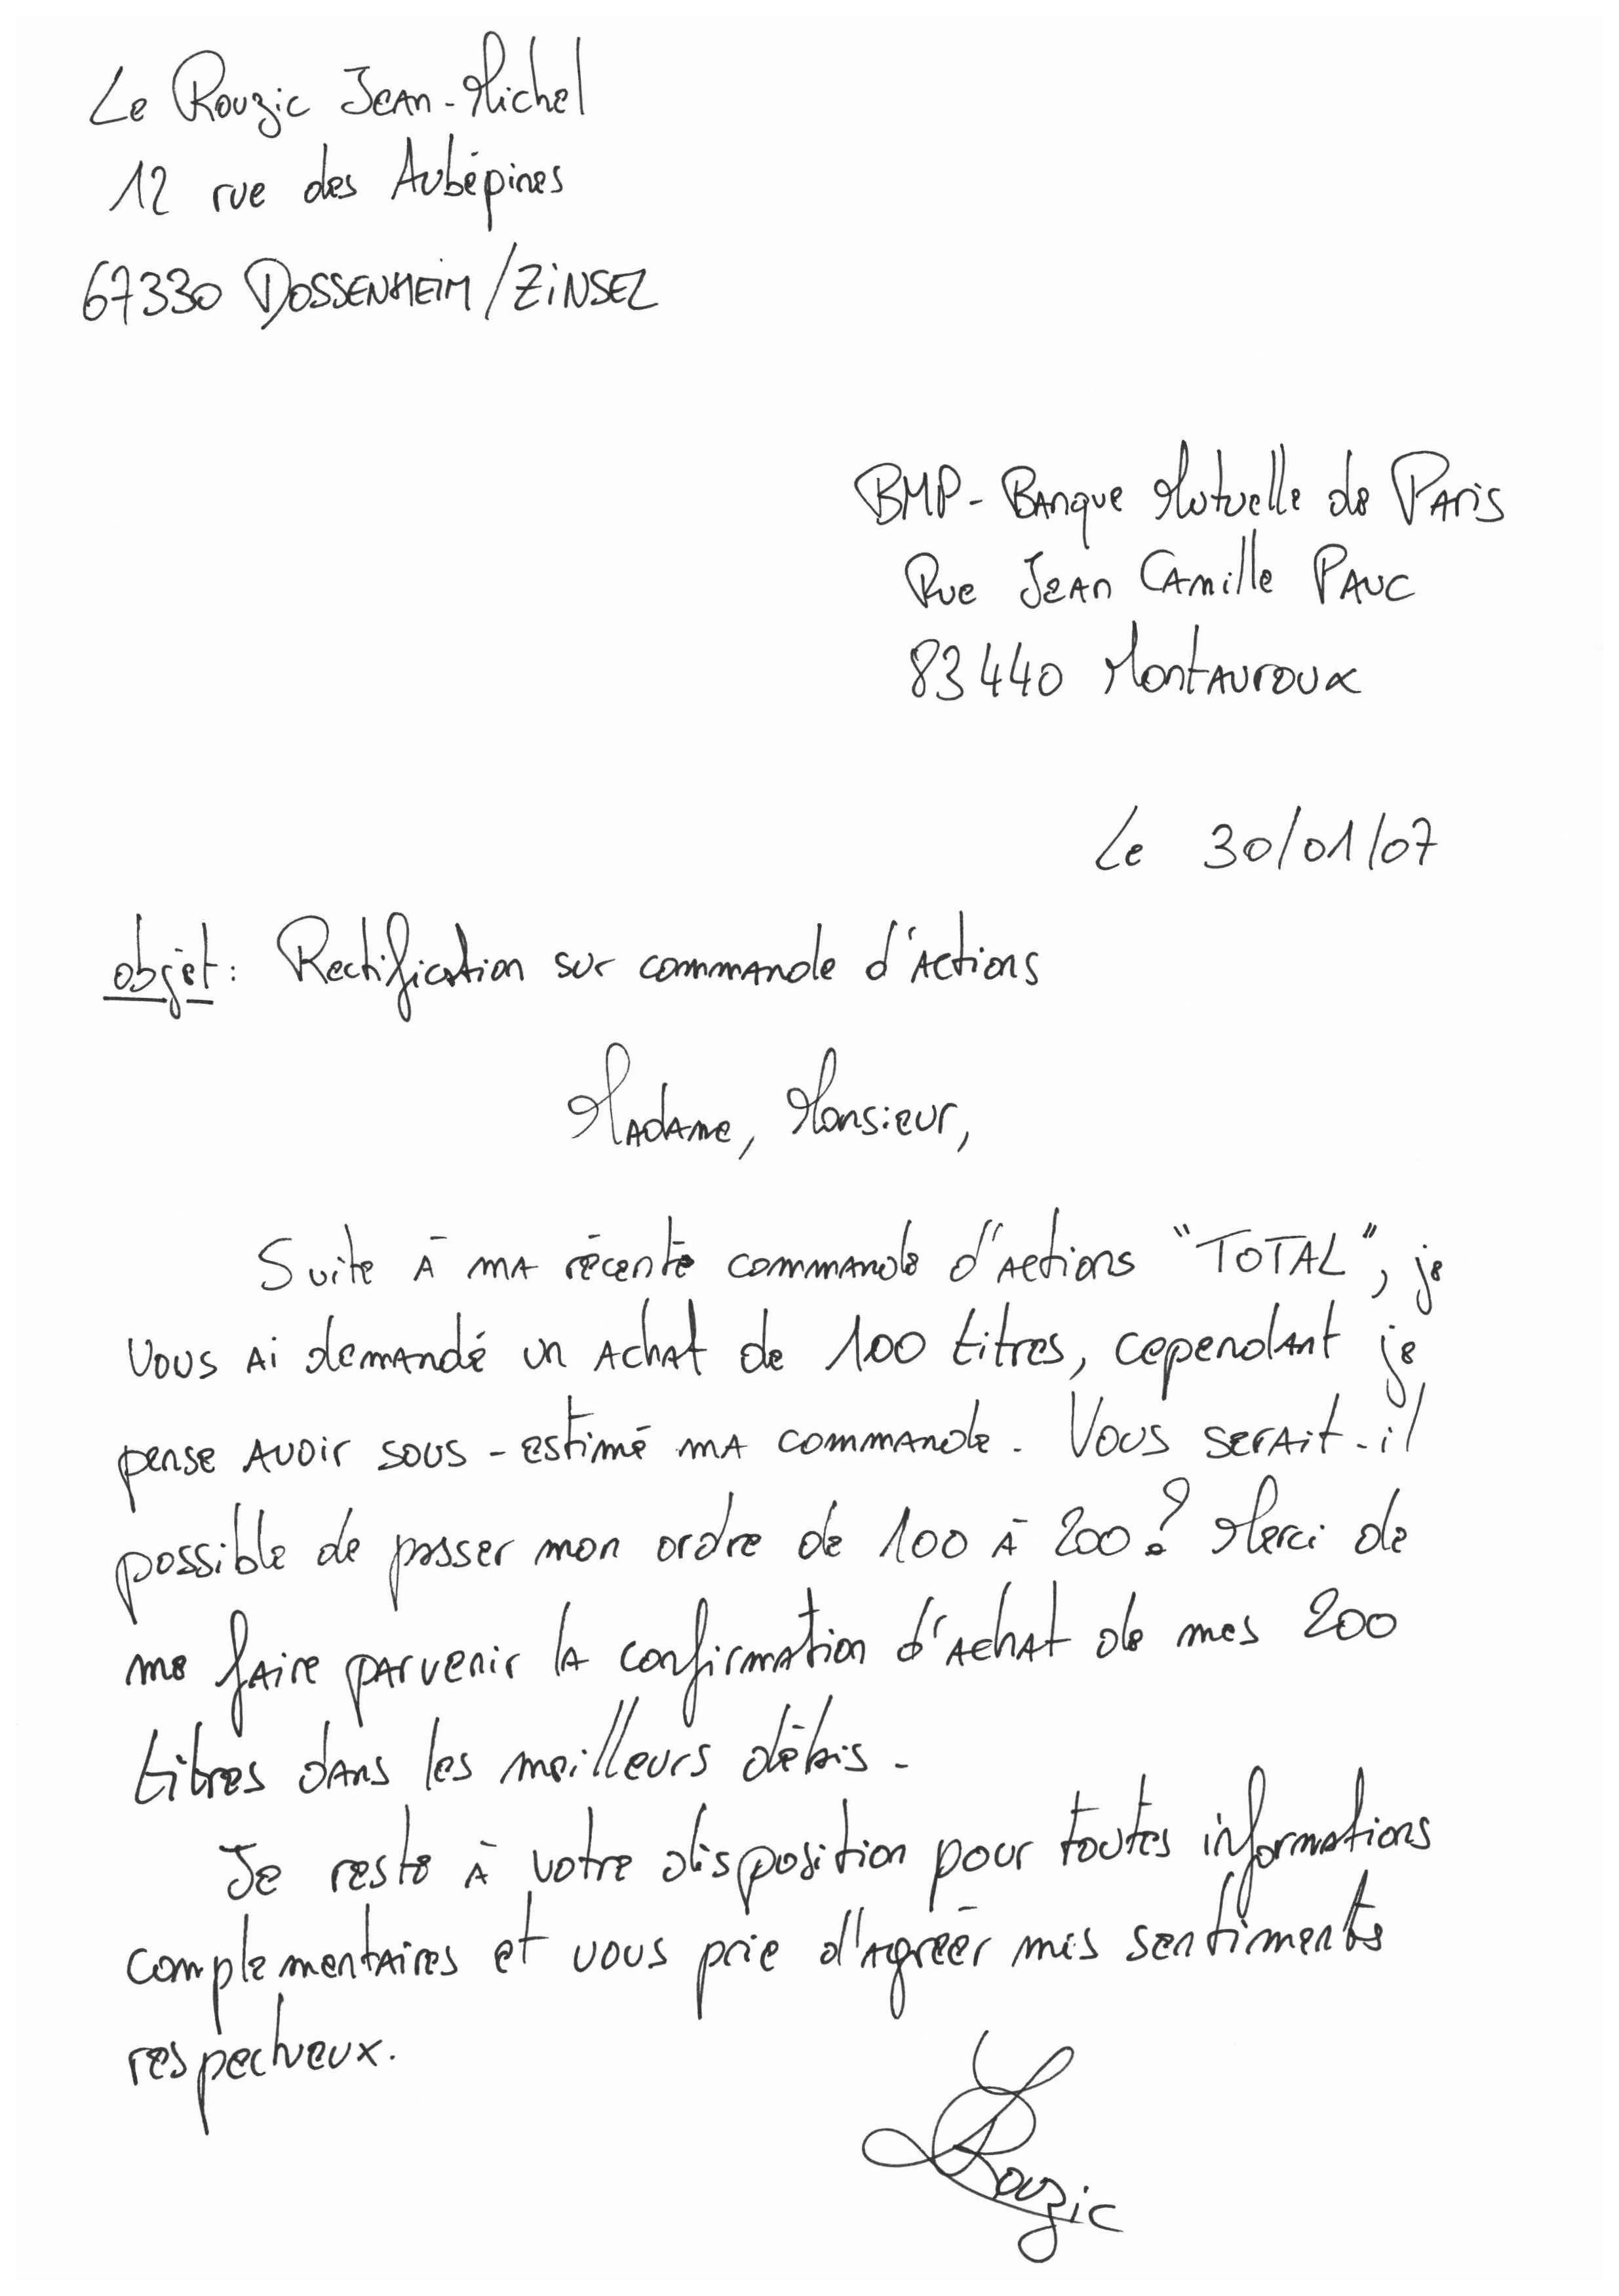 Le Rouzic Jean-Michel
12 rue des Aubépines
67330 DOSSENHEIM/ZINSEL
BMP - Banque Mutuelle de Paris
Rue Jean Camille PAUC
83440 Montauroux
Le 30/01/07
objet : Rectification sur commande d'actions
Madame, Monsieur,
Suite à ma récente commande d'actions "TOTAL", je
vous ai demandé un achat de 100 titres, cependant je
pense avoir sous-estimé ma commande. Vous serait-il
possible de passer mon ordre de 100 à 200 ? Merci de
me faire parvenir la confirmation d'achat de mes 200
titres dans les meilleurs délais.
Je reste à votre disposition pour toutes informations
complementaires et vous prie d'agréer mes sentiments
respectueux.
Le Rouzic